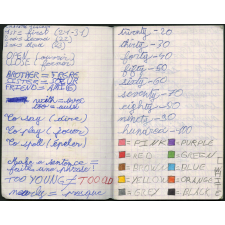 first (21-31)
second (22)
OPEN
CLOSE
BROTHER = FRÈRE
SISTER = SŒUR
FRIEND = AMI(E)
with = avec
too = aussi
To say (dire)
To play (jouer)
To spell (épeler)
sentence =
faire une phrase
TOO YOUNG ≠ TOO OLD
nearly = presque
twenty - 20
thirty - 30
forty - 40
fifty - 50
sixty - 60
seventy - 70
eighty - 80
ninety - 90
hundred - 100
= PINK = PURPLE
= RED = GREEN
= BROWN = BLUE
= YELLOW = ORANGE
= GREY = BLACK